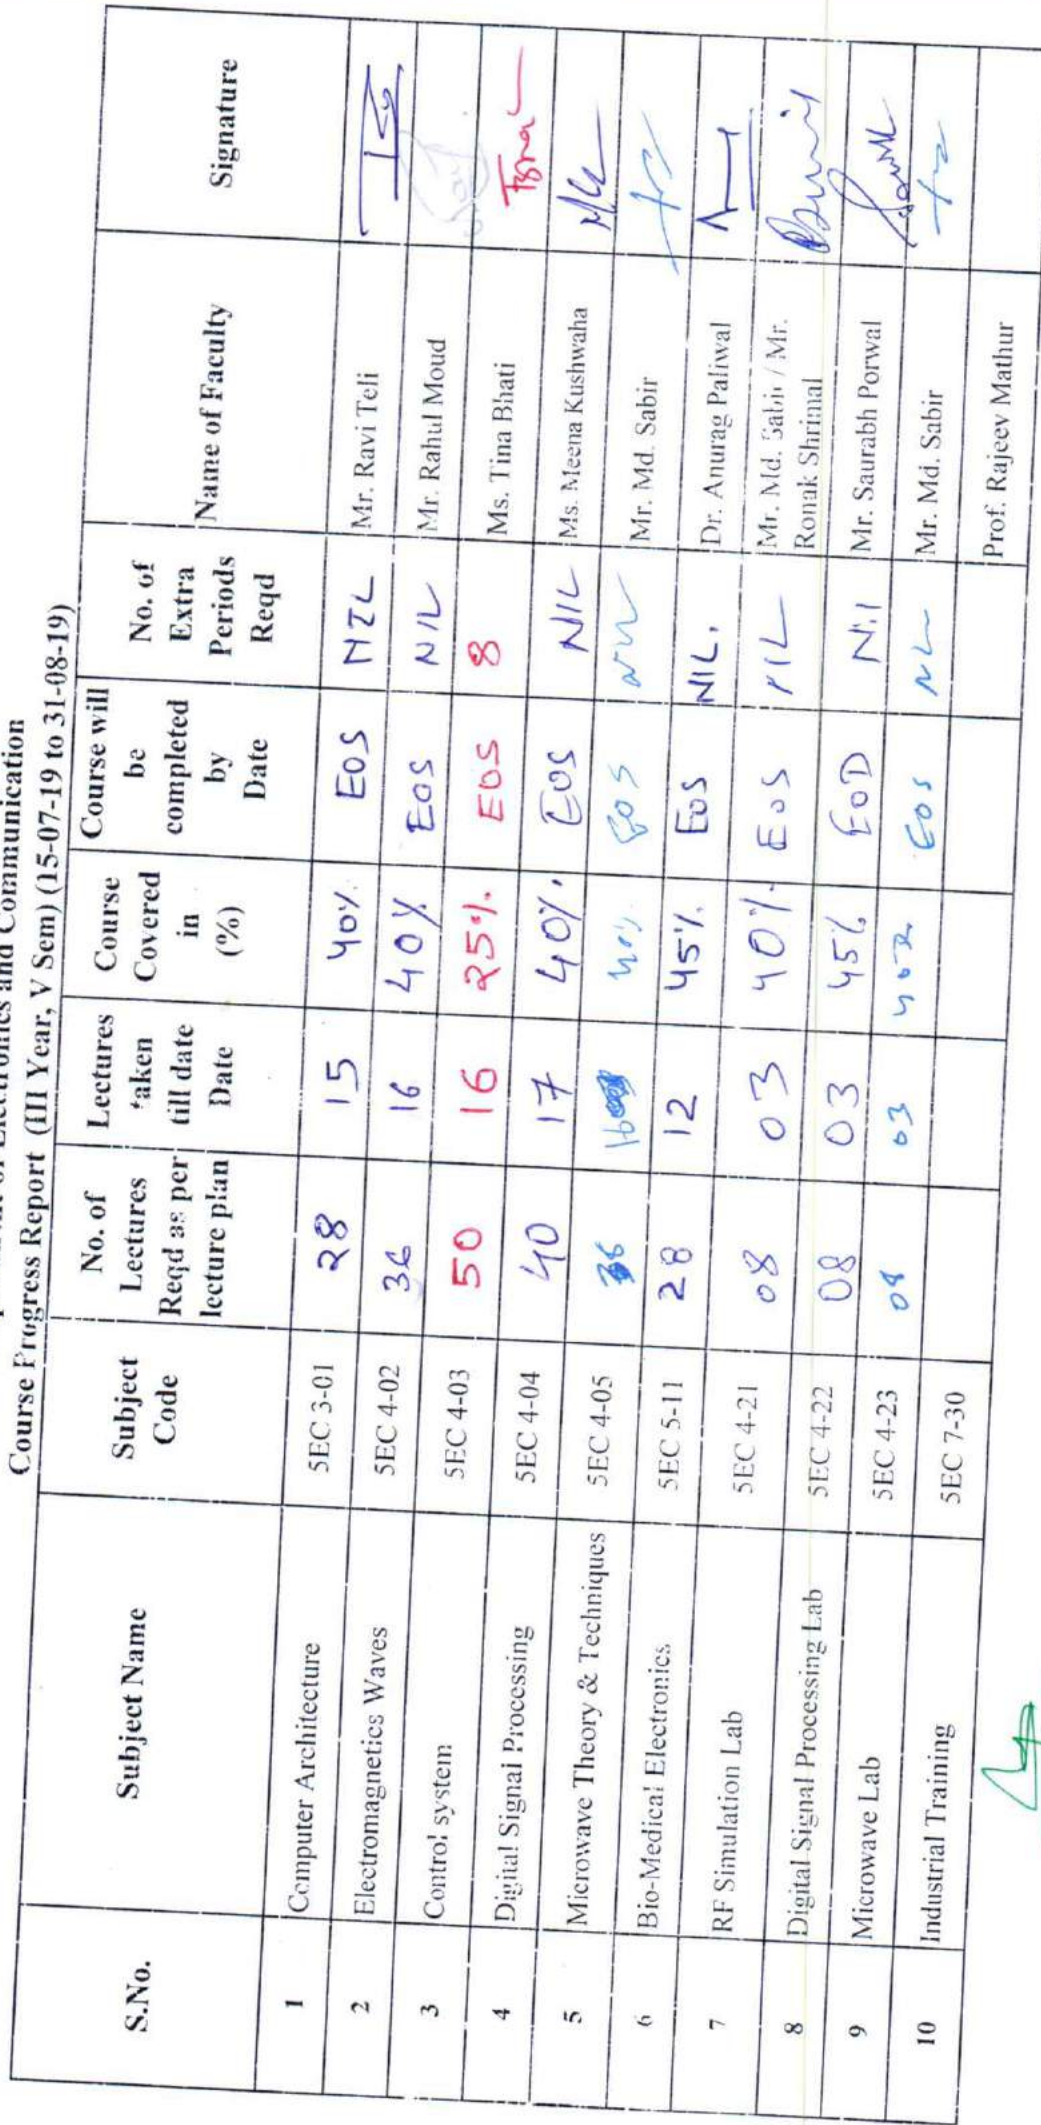 of Electronics and Communication
Course Progress Report (III Year, V Sem) (15-07-19 to 31-08-19)
S.No. Subject Name Subject Code No. of Lectures Reqd as per lecture plan Lectures taken till date Date Course Covered in (%) Course will be completed by Date No. of Extra Periods Reqd Name of Faculty Signature
1 Computer Architecture 5EC 3-01 28 15 40% EOS NIL Mr. Ravi Teli
2 Electromagnetics Waves 5EC 4-02 36 16 40% EOS NIL Mr. Rahul Moud
3 Control system 5EC 4-03 50 16 25% EOS 8 Ms. Tina Bhati Tina
4 Digital Signal Processing 5EC 4-04 40 17 40% EOS NIL Ms. Meena Kushwaha
5 Microwave Theory & Techniques 5EC 4-05 36 16 40% EOS NIL Mr. Md. Sabir
6 Bio-Medical Electronics 5EC 5-11 28 12 45% EOS NIL. Dr. Anurag Paliwal
7 RF Simulation Lab 5EC 4-21 08 03 40% EOS NIL Mr. Md. Sabir / Mr. Ronak Shrimal
8 Digital Signal Processing Lab 5EC 4-22 08 03 45% EOD Nil Mr. Saurabh Porwal
9 Microwave Lab 5EC 4-23 08 03 40% EOS NIL Mr. Md. Sabir
10 Industrial Training 5EC 7-30 Prof. Rajeev Mathur